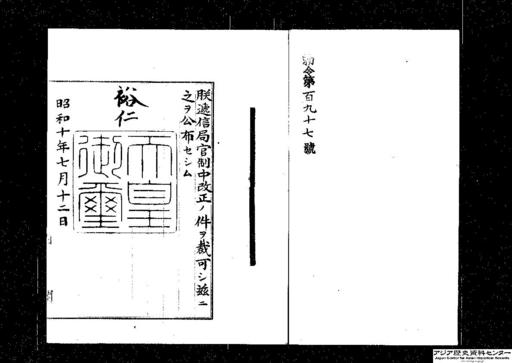 勅令第百九十七號
朕遞信局官制中改正ノ件ヲ裁可シ茲ニ
之ヲ公布セシム
裕仁
天皇
御璽
昭和十年七月十二日
アジア歴史資料センター
Japan Center for Asian Historical Records